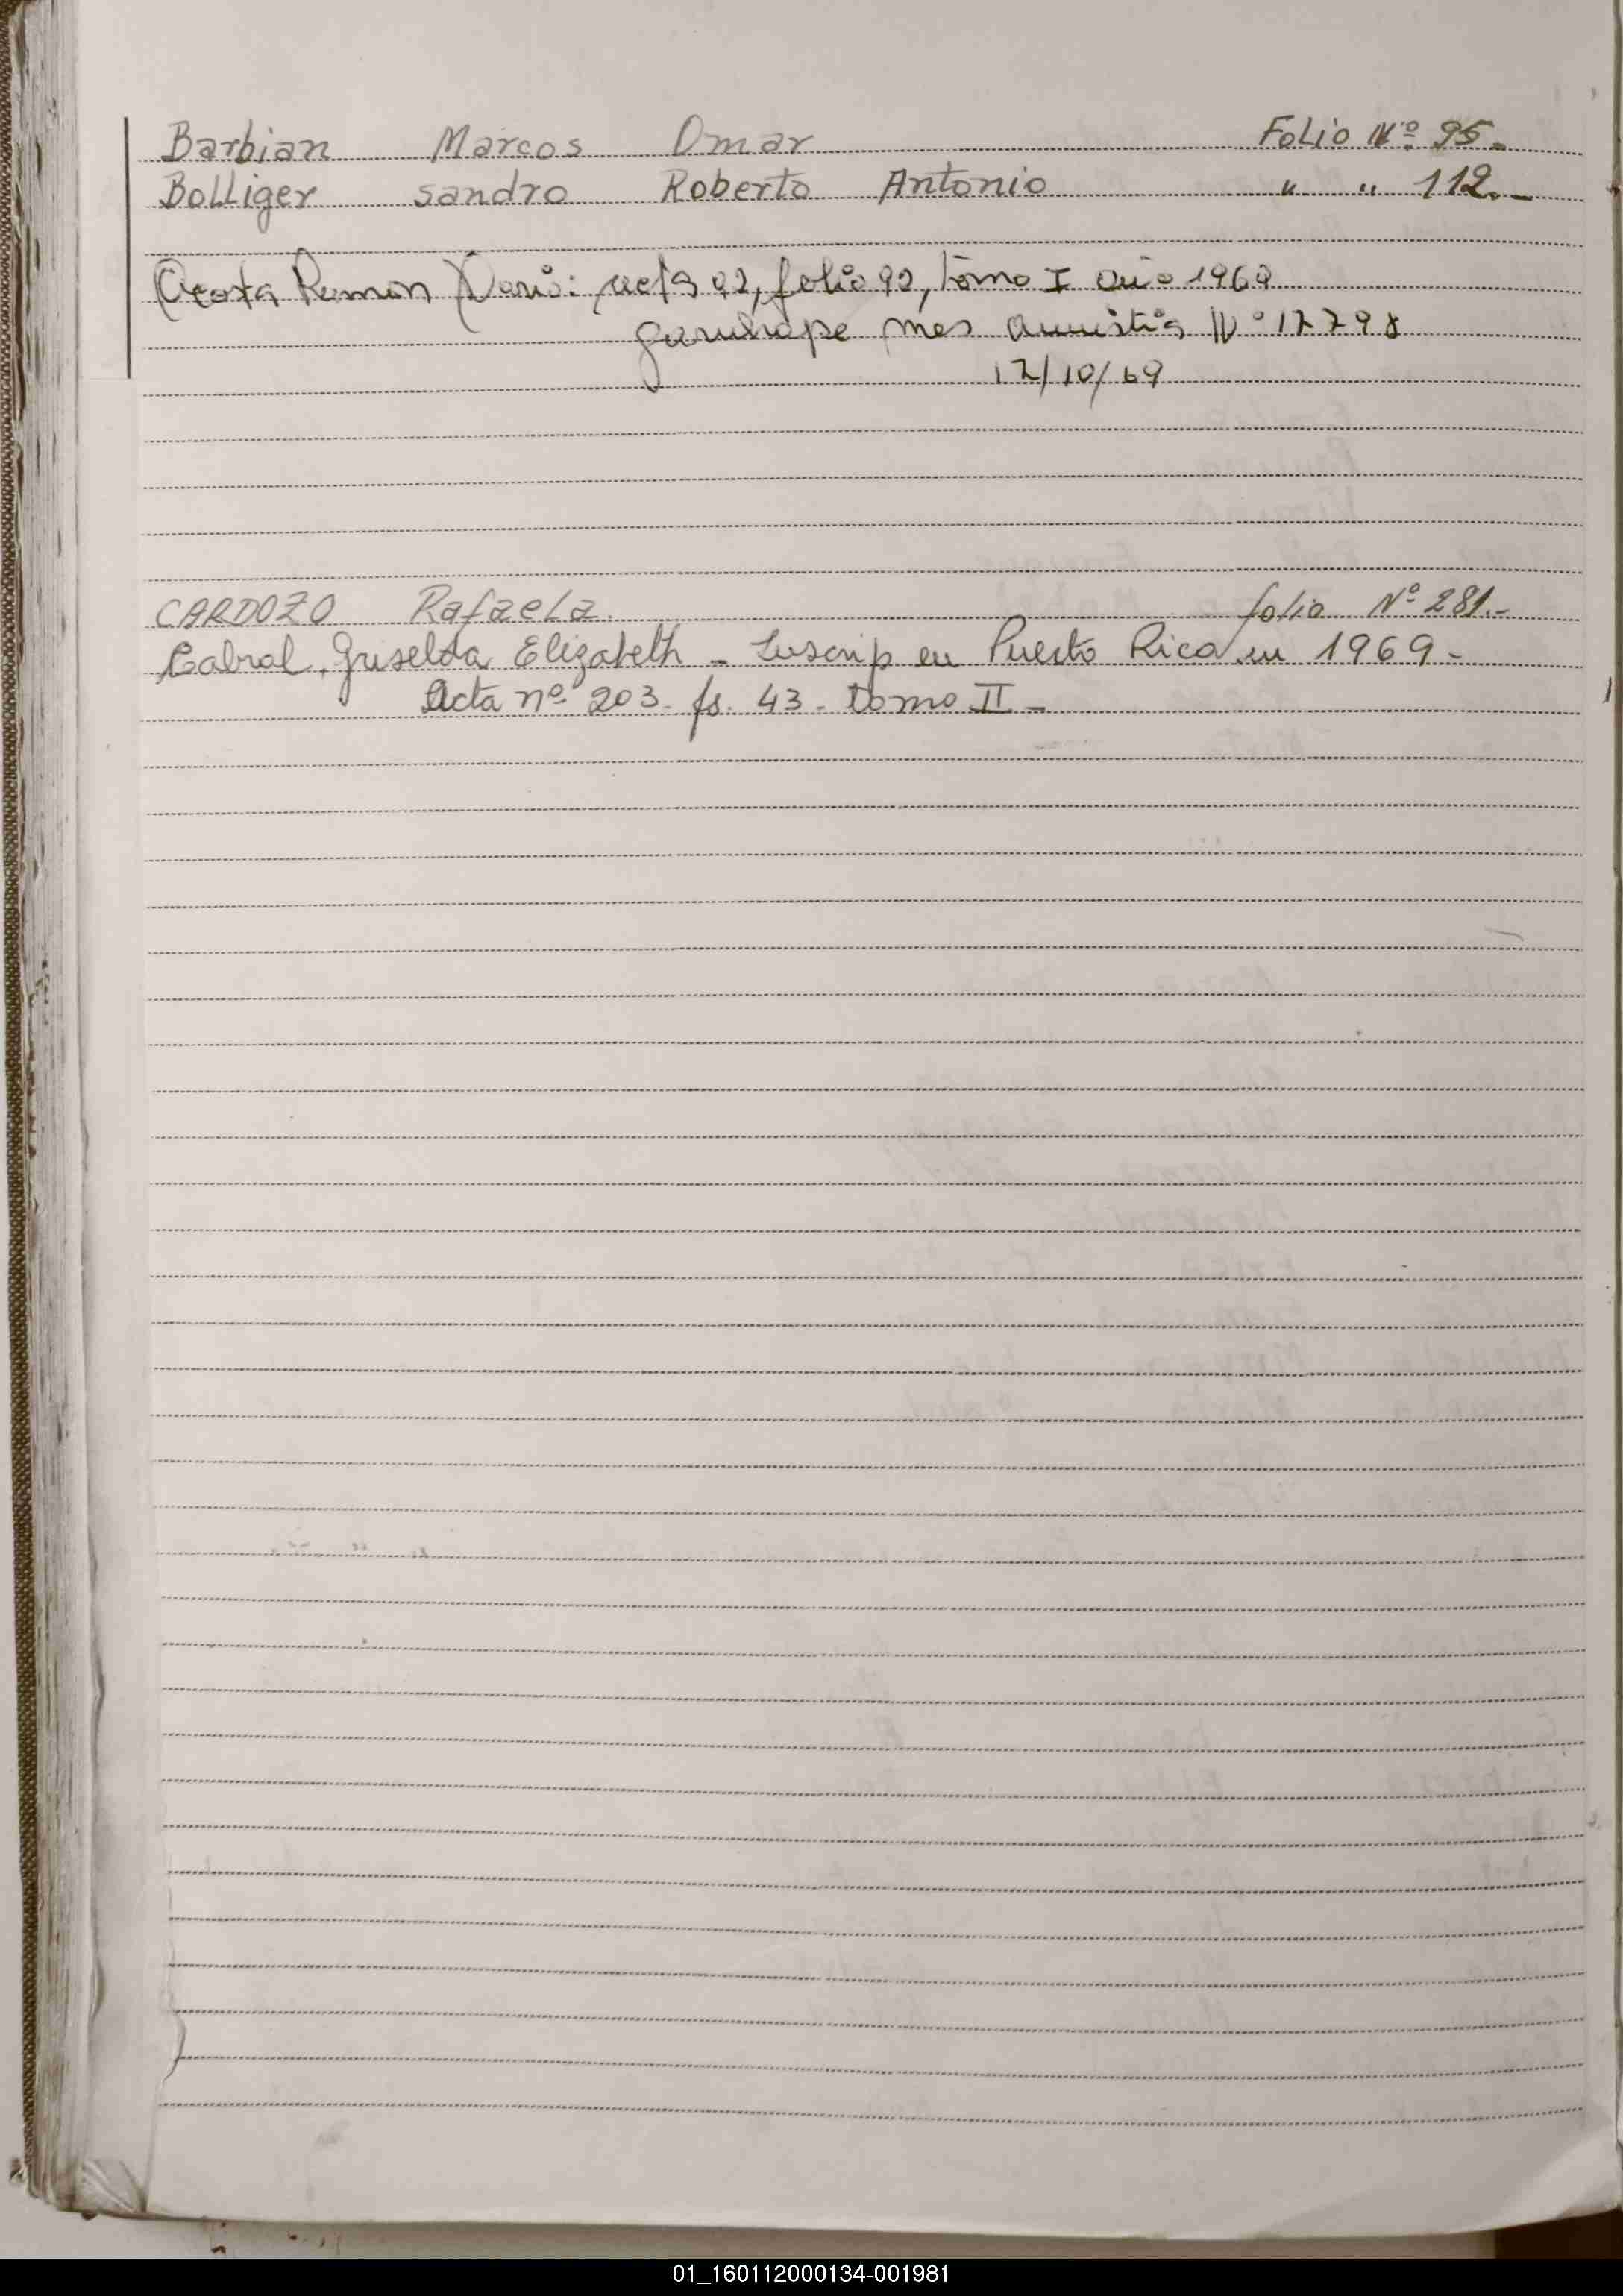 Barbian Marcos Omar Folio Nº 95.-
Bolliger Sandro Roberto Antonio " " 112.-
Acosta Ramon Dario: acta 92, folio 92, tomo I año 1969
garuhape mes amnistia Nº 17798
17/10/69
CARDOZO Rafaela. folio Nº 281.-
Cabral, Griselda Elizabeth - Inscrip en Puerto Rico en 1969 -
Acta nº 203 - fs. 43 - tomo II -
01_160112000134-001981